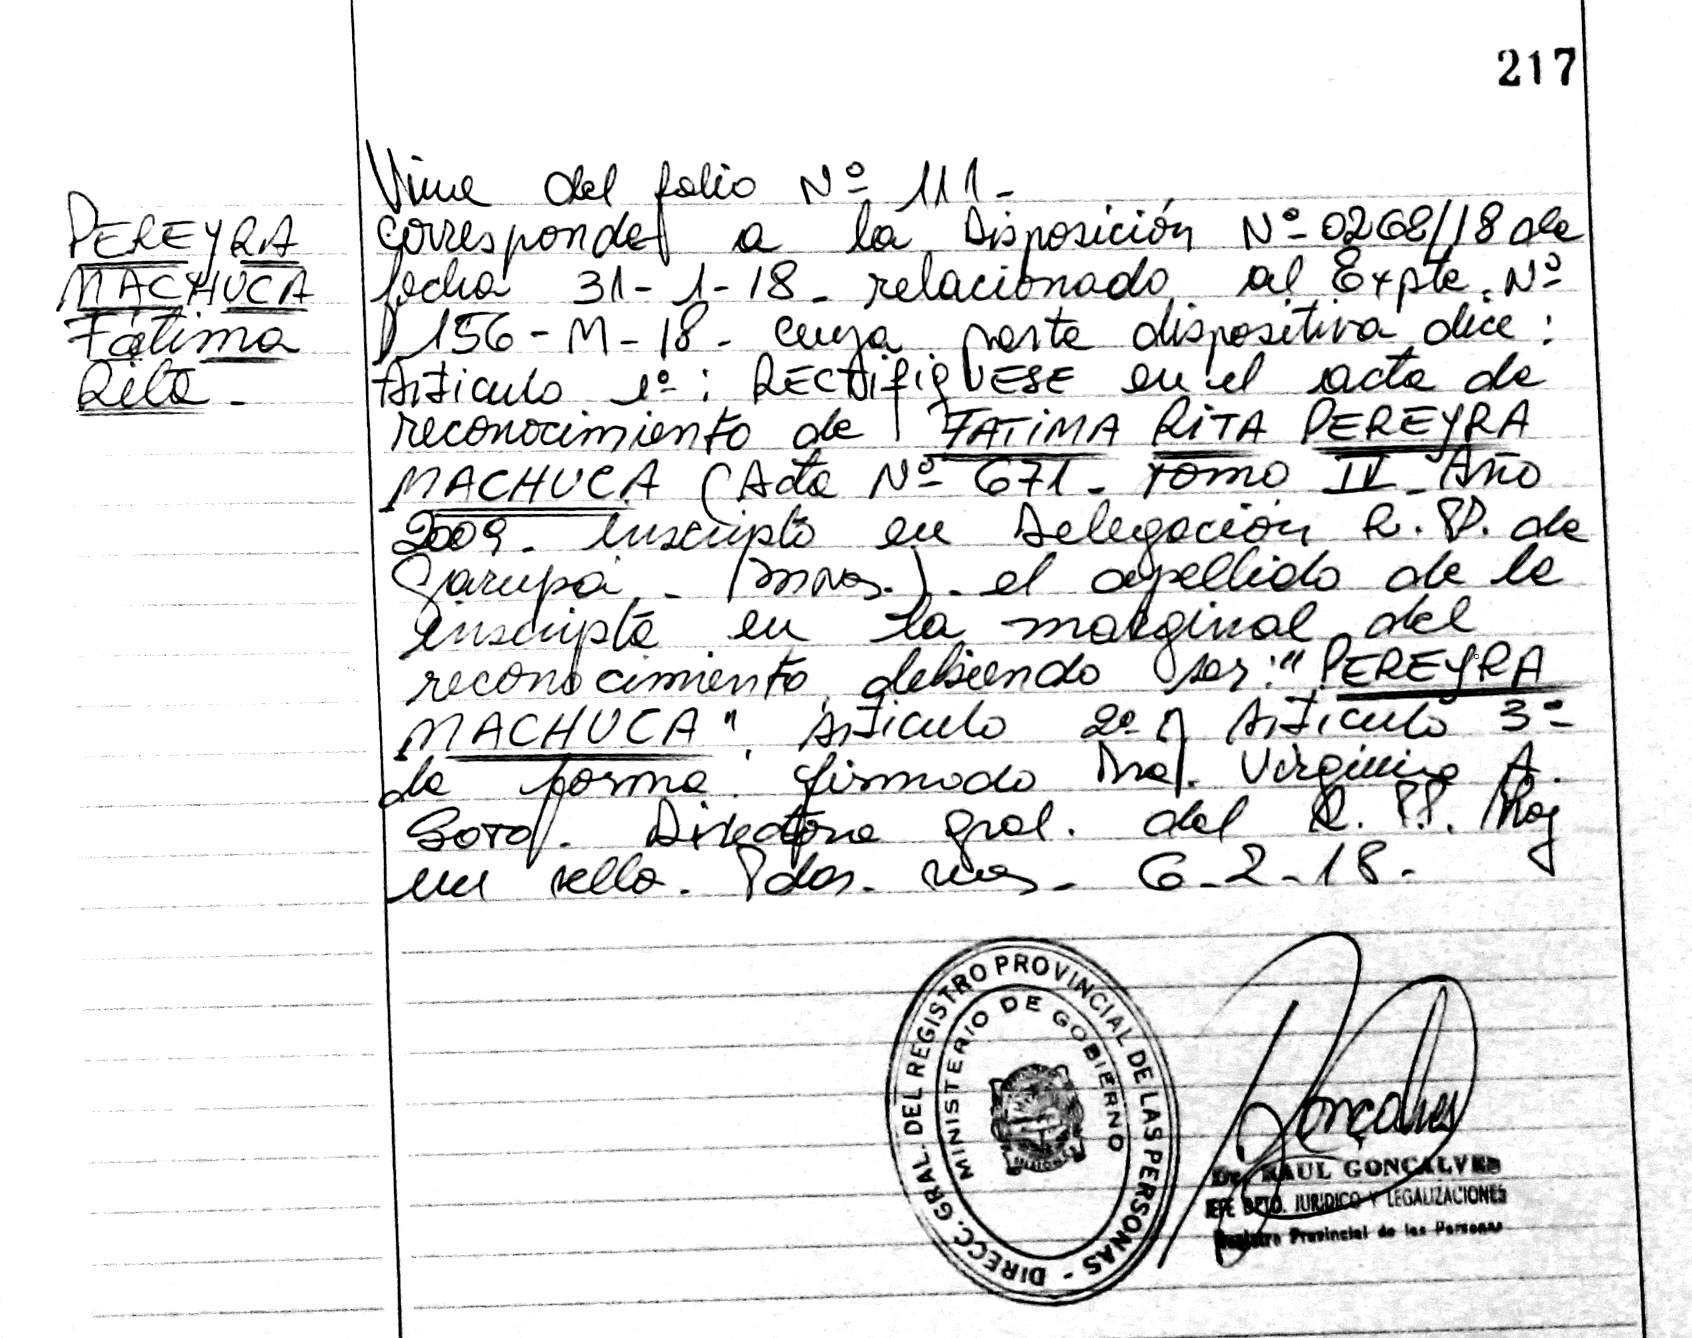 217
PEREYRA
MACHUCA
Fátima
Rita.
Viene del folio Nº 111-
corresponde a la Disposición Nº 0268/18 de
fecha 31-1-18- relacionado al Expte. Nº
156-M-18- cuya parte dispositiva dice:
Articulo 1º: RECTIFIQUESE en el acta de
reconocimiento de FATIMA RITA PEREYRA
MACHUCA (Acta Nº 671- tomo IV- Año
2009. Inscripta en Delegación R.PP. de
Garupá - (Mnes.) - el apellido de la
inscripta en la marginal del
reconocimiento, debiendo ser: "PEREYRA
MACHUCA". Articulo 2º y Articulo 3º
de forma. firmado Dra. Virginia A.
Soto. Directora gral. del R.PP. Hay
un sello. Pdas. Mnes. 6-2-18.
DIRECC. GRAL. DEL REGISTRO PROVINCIAL DE LAS PERSONAS -
MINISTERIO DE GOBIERNO
MISIONES
Goncalves
Dr. RAUL GONCALVES
JEFE DPTO. JURIDICO Y LEGALIZACIONES
Registro Provincial de las Personas